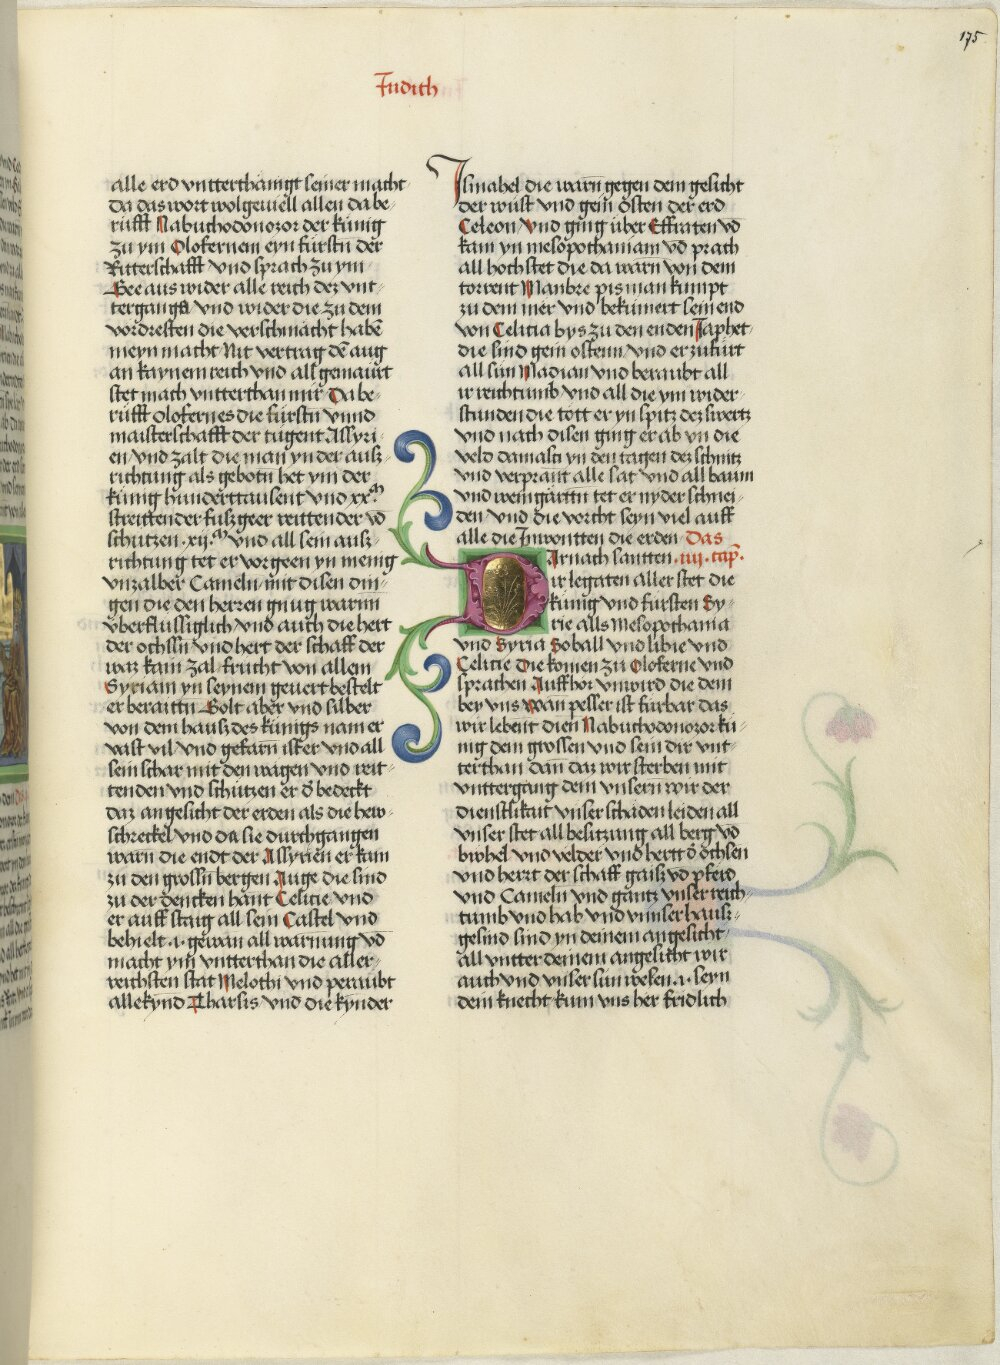 175
Judith
alle erd vntterthänigt seiner macht
da das wort wolgeuiell allen da be-
rüfft Nabuchodonozor der künig
zu ym Olofernem eyn fürstn der
Ritterschafft vnd sprach zu ym
Gee aus wider alle reich dez vnt-
tergangs vnd wider die zu dem
vordresten die verschmächt habē
meyn macht Nit vertrag dē aug
an kaynem reich vnd all gemaurt
stet mach vntterthan mir Da be-
rüfft Olofernes die fürstn vnnd
maisterschafft der tugent Assyri-
en vnd zalt die man yn der ausz-
richtung als gebotn het ym der
künig hunderttausent vnd xxm
streittender fuszgeer reittender vō
schützen .xij.m vnd all sein ausz-
richtung tet er vorgeen yn menig
vnzalber Cameln mit disen din-
gen die den herren gnug warnn
vberflussiglich vnd auch die hert
der ochssn vnd hert der schaff der
waz kain zal frucht von allem
Syriam yn seynem geuert bestelt
er beraittn Golt aber vnd silber
von dem hausz des künigs nam er
vast vil vnd gefarn ist er vnd all
sein schar mit den wägen vnd reit-
tenden vnd schützen er ō bedeckt
daz angesicht der erden als die hew-
schreckel vnd da sie durchgangen
warn die endt der Assyrien er kam
zu den grossn bergen Auge die sind
zu der dencken hant Celicie vnd
er auff staig all sein Castel vnd
behielt .1. gewan all warnung vō
macht ym vntterthan die aller-
reichsten stat Melothi vnd peraubt
alle kynd Tharsis vnd die kynder
Ismahel die warn gegen dem gesicht
der wüst vnd gein östen der erd
Celeon vnd ging über Effraten vō
kam yn mesopothamiam vō prach
all hoch stet die da warn von dem
torrent Manbre pis man kumpt
zu dem mer vnd bekümert sein end
von Celicia bys zu den enden Japhet
die sind gein ostenn vnd er zufürt
all sün Madian vnd beraubt all
ir reichtumb vnd all die ym wider-
stunden die tött er yn spitz dez swertz
vnd nach disen ging er ab yn die
veld damasci yn den tagen dez schnitz
vnd verprant alle sat vnd all baum
vnd weingärttn tet er nyder schnei-
den vnd die vorcht seyn viel auff
alle die Inwontten die erden Das
Darnach santten .iiij. cap.
ir legaten aller stet die
künig vnd fürsten Sy-
rie alls Mesopothania
vnd Syria Soball vnd libie vnd
Celicie Die komen zu Oloferne vnd
sprachen Auffhör vnwird die dem
bey vns wan pesser ist fürbar das
wir lebent dien Nabuchodonozor kü-
nig dem grossen vnd sein dir vnt-
terthan dan daz wir sterben mit
vnttergang dem vnsern wir der
dienstikait vnser schäden leiden all
vnser stet all besitzung all berg vō
bwhel vnd velder vnd hertt ō öchsen
vnd herzt der schaff gaisz vō pferd
vnd Cameln vnd gantz vnser reich-
tumb vnd hab vnd vnnser hausz-
gesind sind yn deinem angesicht
all vntter deinem angesicht wir
auch vnd vnser sün wesen .1. seyn
dein knecht kum vns her fridlich